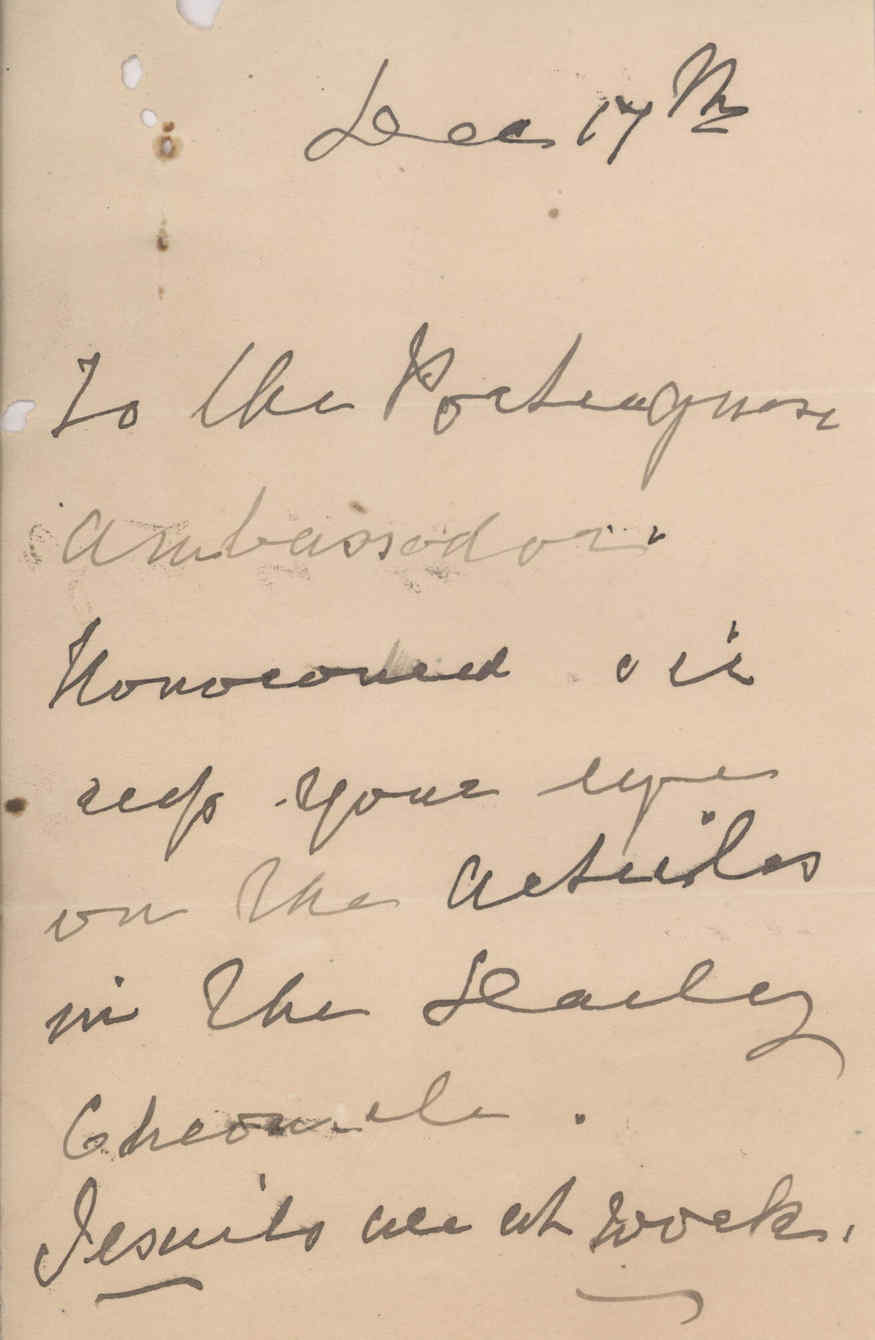 Dec 17th
To the Porteuguese
Ambassador.
Honoroured sir
keep your eyes
on the Articles
in the Daily
Chronicle.
Jesuits are at work.